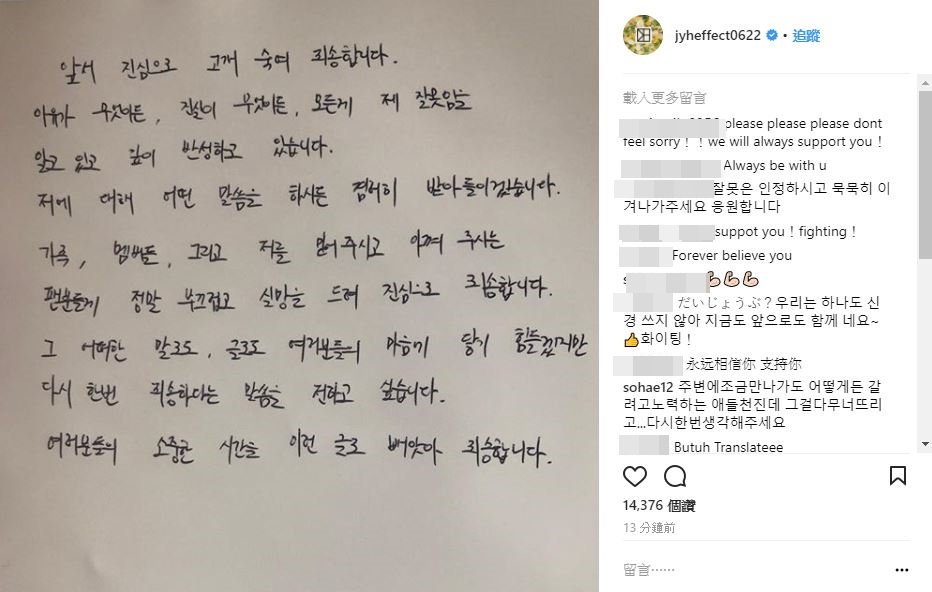 앞서 진심으로 고개 숙여 죄송합니다.
이유가 무엇이든, 진실이 무엇이든, 모든게 제 잘못임을
알고 있고 깊이 반성하고 있습니다.
저에 대해 어떤 말씀을 하시든 겸허히 받아들이겠습니다.
가족, 멤버들, 그리고 저를 믿어주시고 아껴 주시는
팬분들께 정말 부끄럽고 실망을 드려 진심으로 죄송합니다.
그 어떠한 말로도, 글로도 여러분들의 마음에 닿기 힘들겠지만
다시 한번 죄송하다는 말씀을 전하고 싶습니다.
여러분들의 소중한 시간을 이런 글로 빼앗아 죄송합니다.
jyheffect0622 • 追蹤
載入更多留言
please please please dont
feel sorry！！we will always support you！
Always be with u
잘못은 인정하시고 묵묵히 이
겨나가주세요 응원합니다
suppot you！fighting！
Forever believe you
s
💪🏻💪🏻💪🏻
だいじょうぶ？우리는 하나도 신
경 쓰지 않아 지금도 앞으로도 함께 네요~
👍화이팅！
永远相信你 支持你
sohae12 주변에조금만나가도 어떻게든 갈
려고노력하는 애들천진데 그걸다무너뜨리
고...다시한번생각해주세요
Butuh Translateee
14,376 個讚
13 分鐘前
留言……